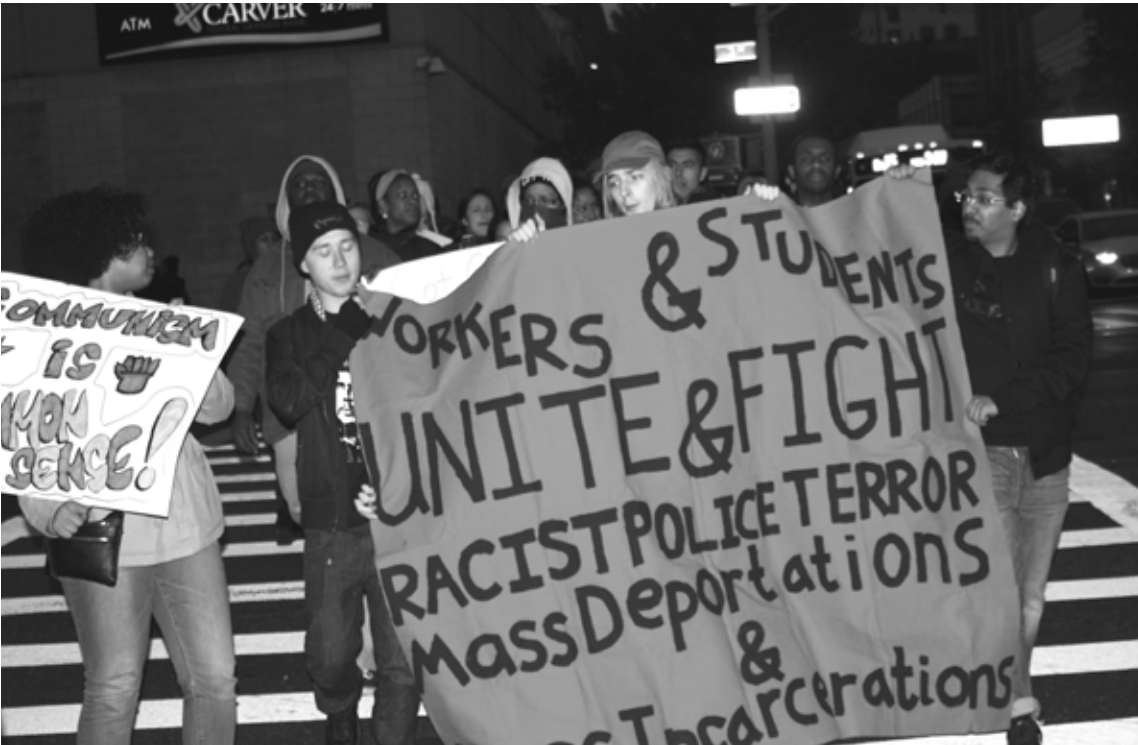 ATM CARVER 24/7
COMMUNISM
IS
SENSE!
WORKERS & STUDENTS
UNITE & FIGHT
RACIST POLICE TERROR
MassDeportations
&
Incarcerations